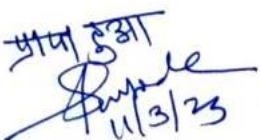 प्राप्त हुआ
11/3/23